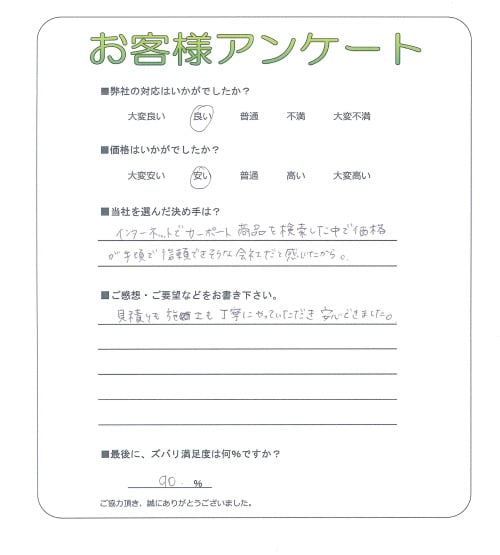 お客様アンケート
■弊社の対応はいかがでしたか？
大変良い 良い 普通 不満 大変不満
■価格はいかがでしたか？
大変安い 安い 普通 高い 大変高い
■当社を選んだ決め手は？
インターネットでカーポート商品を検索した中で価格
が手頃で信頼できそうな会社だと感じたから。
■ご感想・ご要望などをお書き下さい。
見積りも施工も丁寧にやっていただき安心できました。
■最後に、ズバリ満足度は何％ですか？
90 ％
ご協力頂き、誠にありがとうございました。